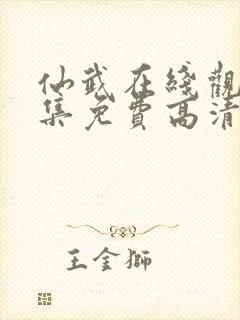 仙武在綫觀
集免費高清
王金獅